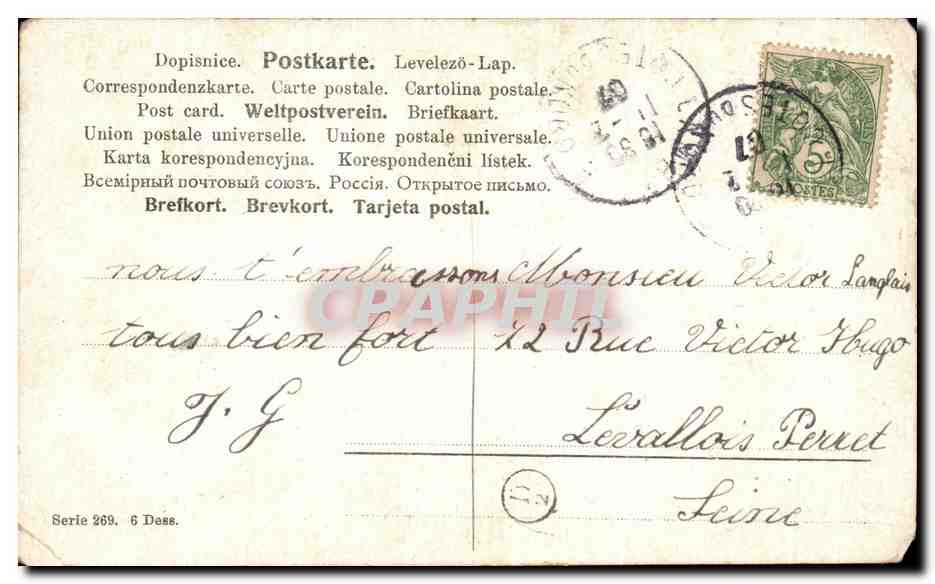 Dopisnice. Postkarte. Levelező-Lap.
Correspondenzkarte. Carte postale. Cartolina postale.
Post card. Weltpostverein. Briefkaart.
Union postale universelle. Unione postale universale.
Karta korespondencyjna. Korespondenční lístek.
Всемірный почтовый союзъ. Россія. Открытое письмо.
Brefkort. Brevkort. Tarjeta postal.
nous t'embrassons
tous bien fort
J. G
Monsieu Victor Langlais
72 Rue Victor Hugo
Levallois Perret
Seine
Serie 269. 6 Dess.
CPAPHIL
POSTES
07
07
2